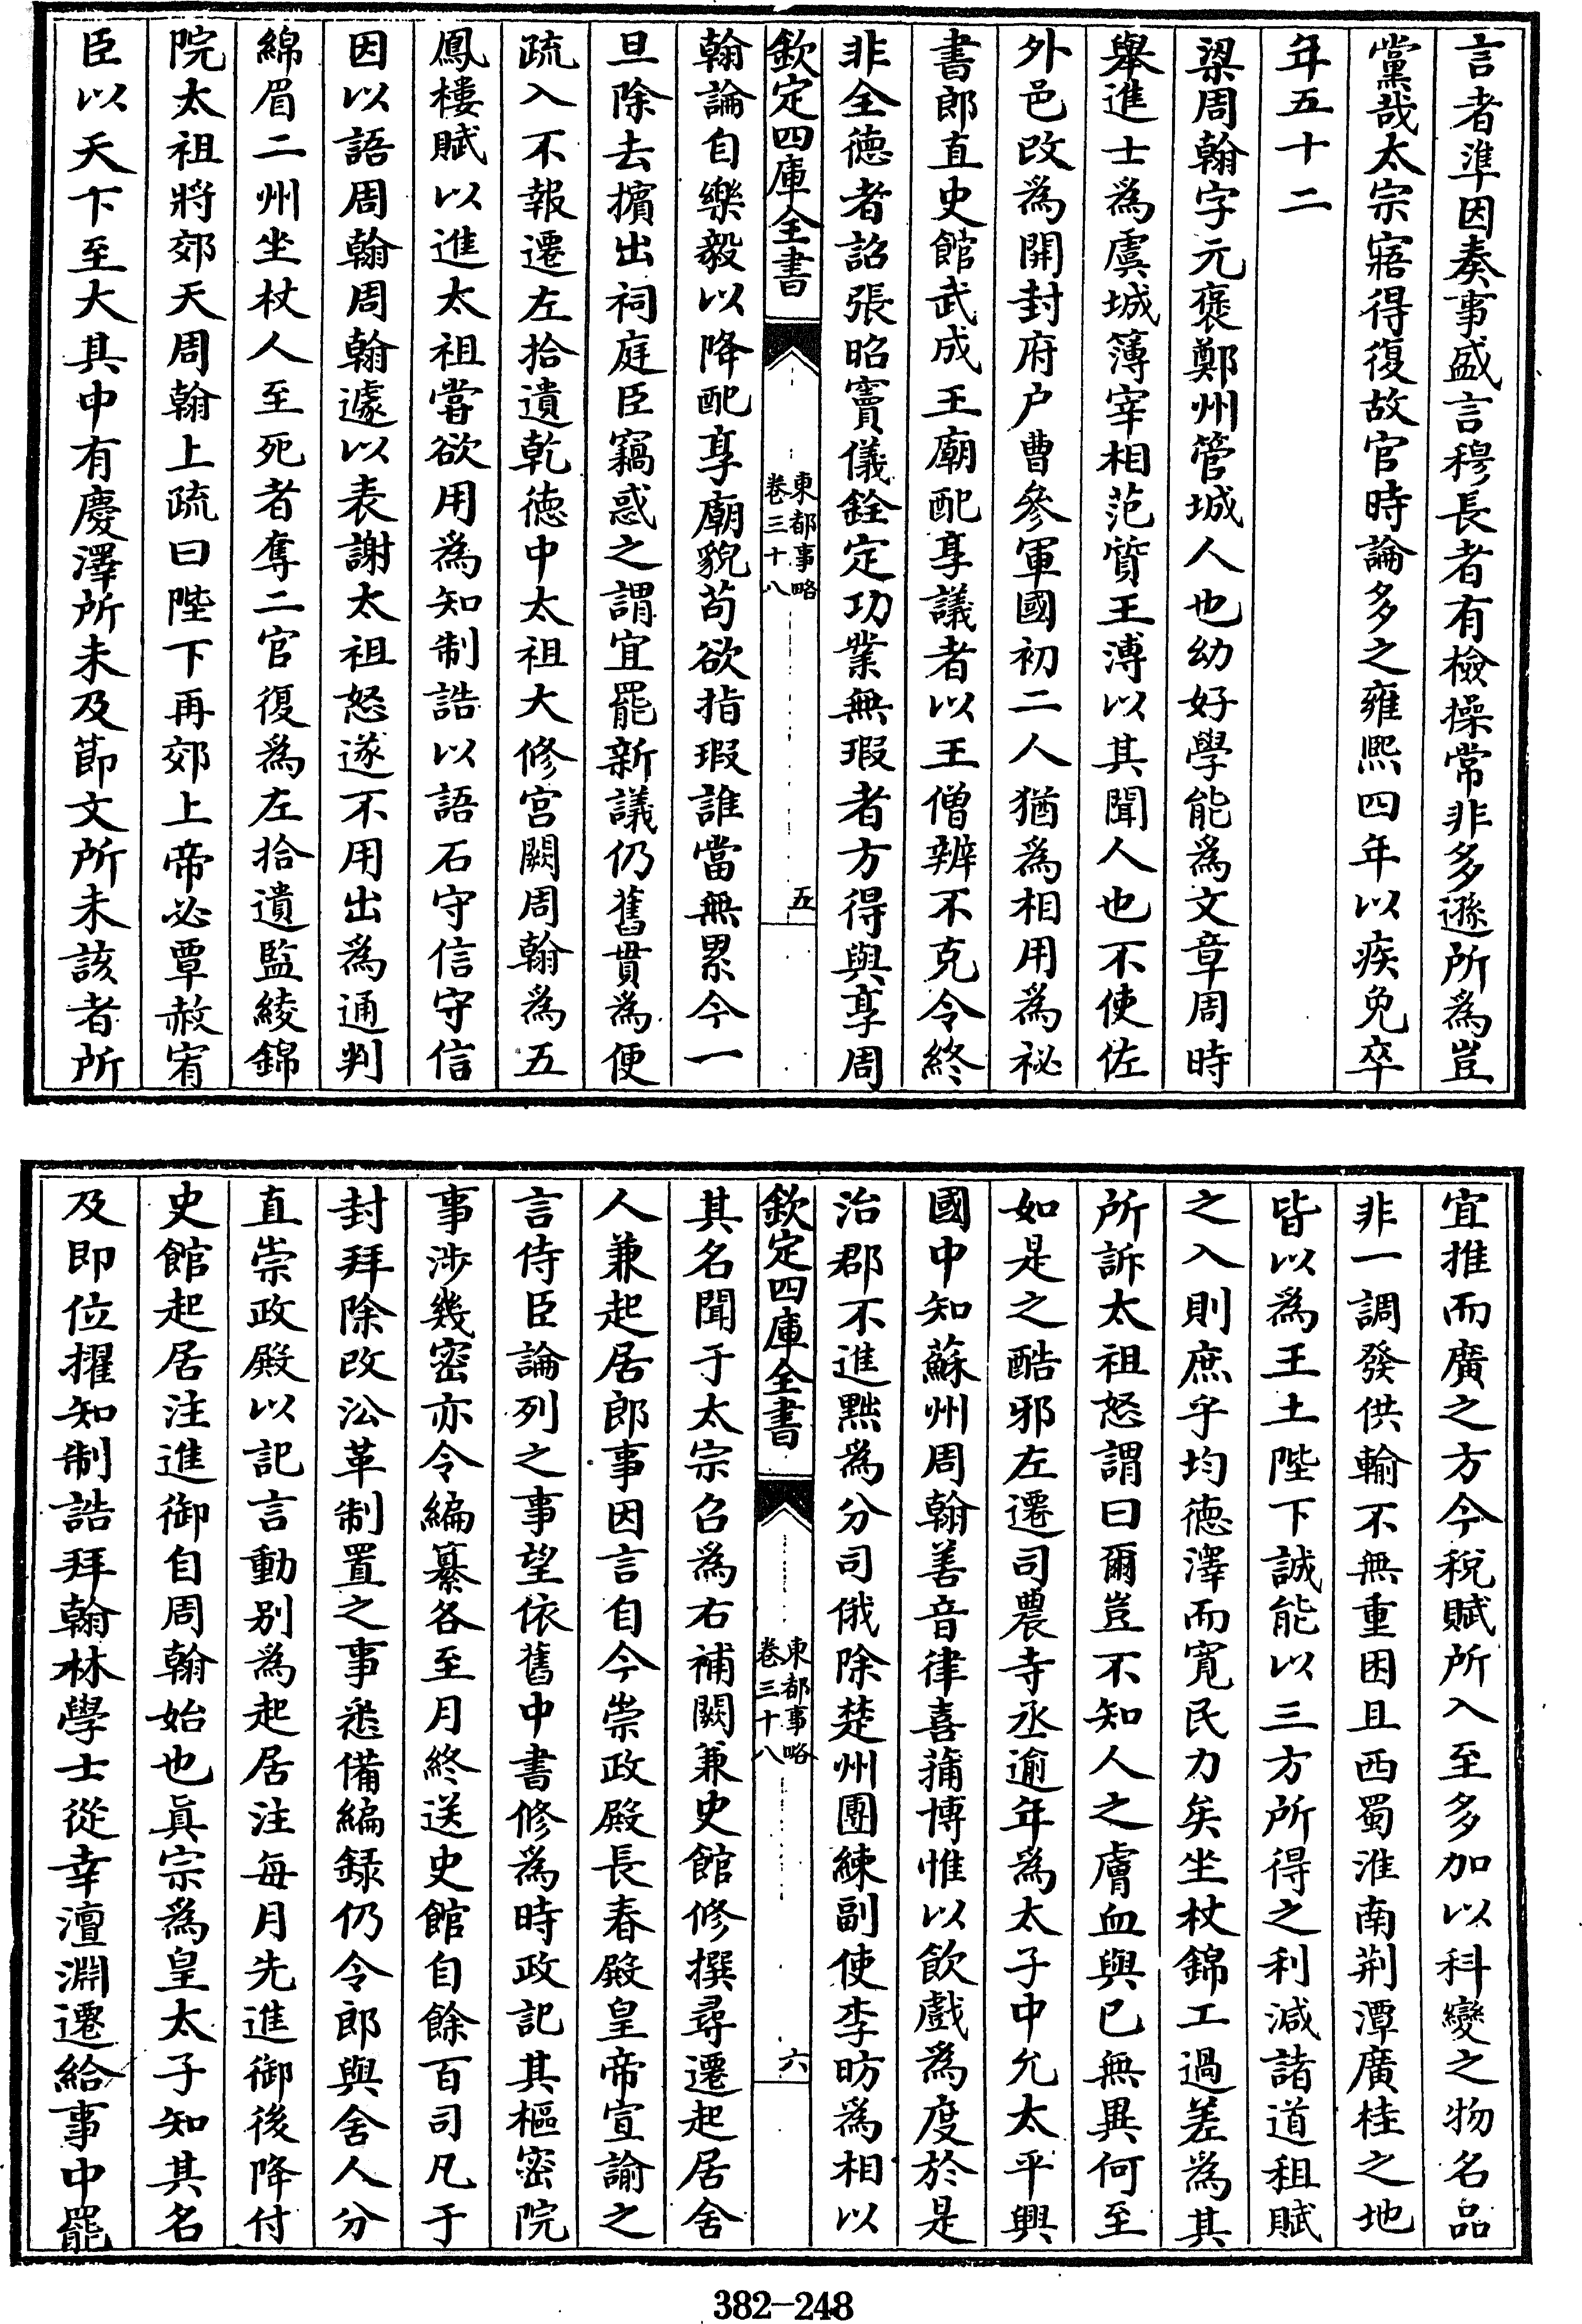 言者準因奏事盛言穆長者有檢操常非多遜所為豈
黨哉太宗寤得復故官時論多之雍熙四年以疾免卒
年五十二
梁周翰字元褒鄭州管城人也幼好學能為文章周時
舉進士為虞城簿宰相范質王溥以其聞人也不使佐
外邑改為開封府户曹參軍國初二人猶為相用為祕
書郎直史館武成王廟配享議者以王僧辨不克令終
非全徳者詔張昭竇儀銓定功業無瑕者方得與享周
欽定四庫全書
東都事略
卷三十八
五
翰論自樂毅以降配享廟貌苟欲指瑕誰當無累今一
旦除去擯出祠庭臣竊惑之謂宜罷新議仍舊貫為便
疏入不報遷左拾遺乾徳中太祖大修宫闕周翰為五
鳳樓賦以進太祖嘗欲用為知制誥以語石守信守信
因以語周翰周翰遽以表謝太祖怒遂不用出為通判
綿眉二州坐杖人至死者奪二官復為左拾遺監綾錦
院太祖將郊天周翰上疏曰陛下再郊上帝必覃赦宥
臣以天下至大其中有慶澤所未及節文所未該者所
宜推而廣之方今稅賦所入至多加以科變之物名品
非一調發供輸不無重困且西蜀淮南荆潭廣桂之地
皆以為王土陛下誠能以三方所得之利減諸道租賦
之入則庶乎均徳澤而寛民力矣坐杖錦工過差為其
所訴太祖怒謂曰爾豈不知人之膚血與已無異何至
如是之酷邪左遷司農寺丞逾年為太子中允太平興
國中知蘇州周翰善音律喜蒱博惟以飲戲為度於是
治郡不進黜為分司俄除楚州團練副使李昉為相以
欽定四庫全書
東都事略
卷三十八
六
其名聞于太宗召為右補闕兼史館修撰尋遷起居舍
人兼起居郎事因言自今崇政殿長春殿皇帝宣諭之
言侍臣論列之事望依舊中書修為時政記其樞密院
事涉幾密亦令編纂各至月終送史館自餘百司凡于
封拜除改沿革制置之事悉備編録仍令郎與舍人分
直崇政殿以記言動别為起居注每月先進御後降付
史館起居注進御自周翰始也真宗為皇太子知其名
及即位擢知制誥拜翰林學士從幸澶淵遷給事中罷
382-248